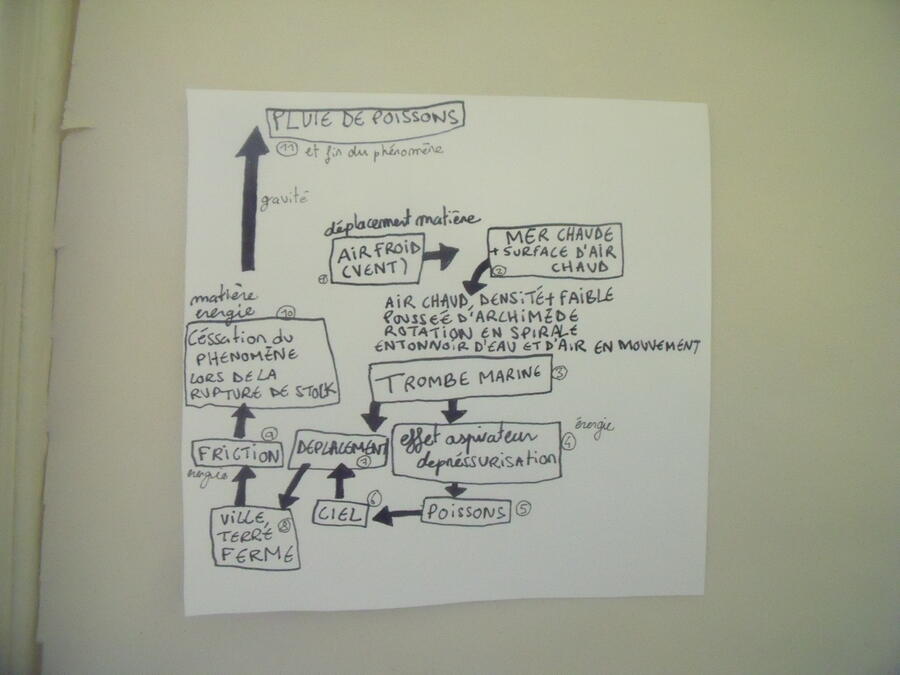 PLUIE DE POISSONS
11 et fin du phénomène
gravité
déplacement matière
AIR FROID
(VENT)
1
MER CHAUDE
+ SURFACE D'AIR
CHAUD
2
AIR CHAUD, DENSITÉ + FAIBLE
POUSSEÉ D'ARCHIMÈDE
ROTATION EN SPIRALE
ENTONNOIR D'EAU ET D'AIR EN MOUVEMENT
TROMBE MARINE 3
matière
energie 10
Céssation du
PHENOMÈNE
LORS DE LA
RUPTURE DE STOCK
énergie
effet aspirateur 4
depréssurisation
DEPLACEMENT
7
9
FRICTION
énergie
6
CIEL
POISSONS 5
VILLE, 8
TERRE
FERME